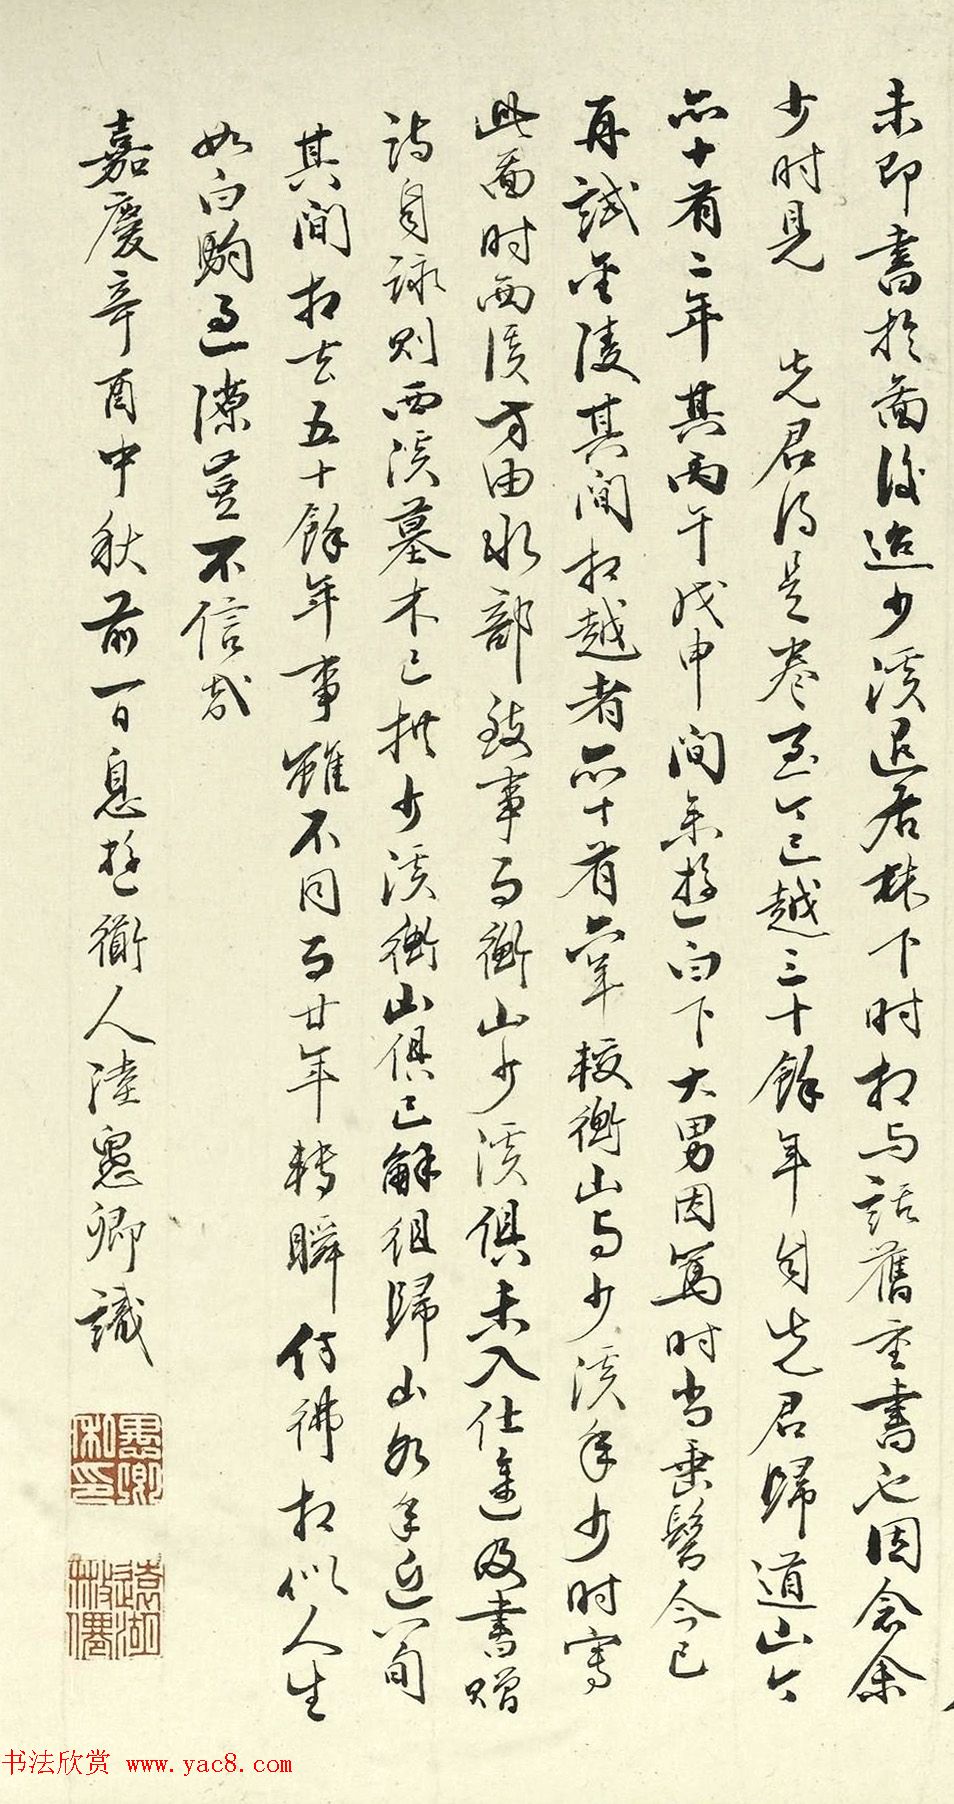 未即書於圖後迨少溪退居林下时相与話舊重書之因念余
少时見 先君得是卷至今已越三十餘年自先君歸道山亦
十有二年其丙午戊申間余遊白下大男因篤时尚垂髫今已
再試金陵其間相越者亦十有年較衡山与少溪年少时寫
此圖时西溪方由水部致事而衡山少溪俱未入仕途及書贈
詩自詠則西溪墓木已拱少溪衡山俱已解組歸山如年近八旬
其間相去五十餘年事雖不同而廿年轉瞬仿彿相似人生
如白駒過隙豈不信哉
嘉慶辛酉中秋前一日息遊衜人陸愚卿識
愚卿私印
遠湖
书法欣赏 www.yac8.com